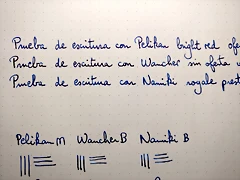 Prueba de escritura con Pelikan bright red ofe
Prueba de escritura con Wancher sin oferta
Prueba de escritura con Namiki royale prest
Pelikan M Wancher B Namiki B